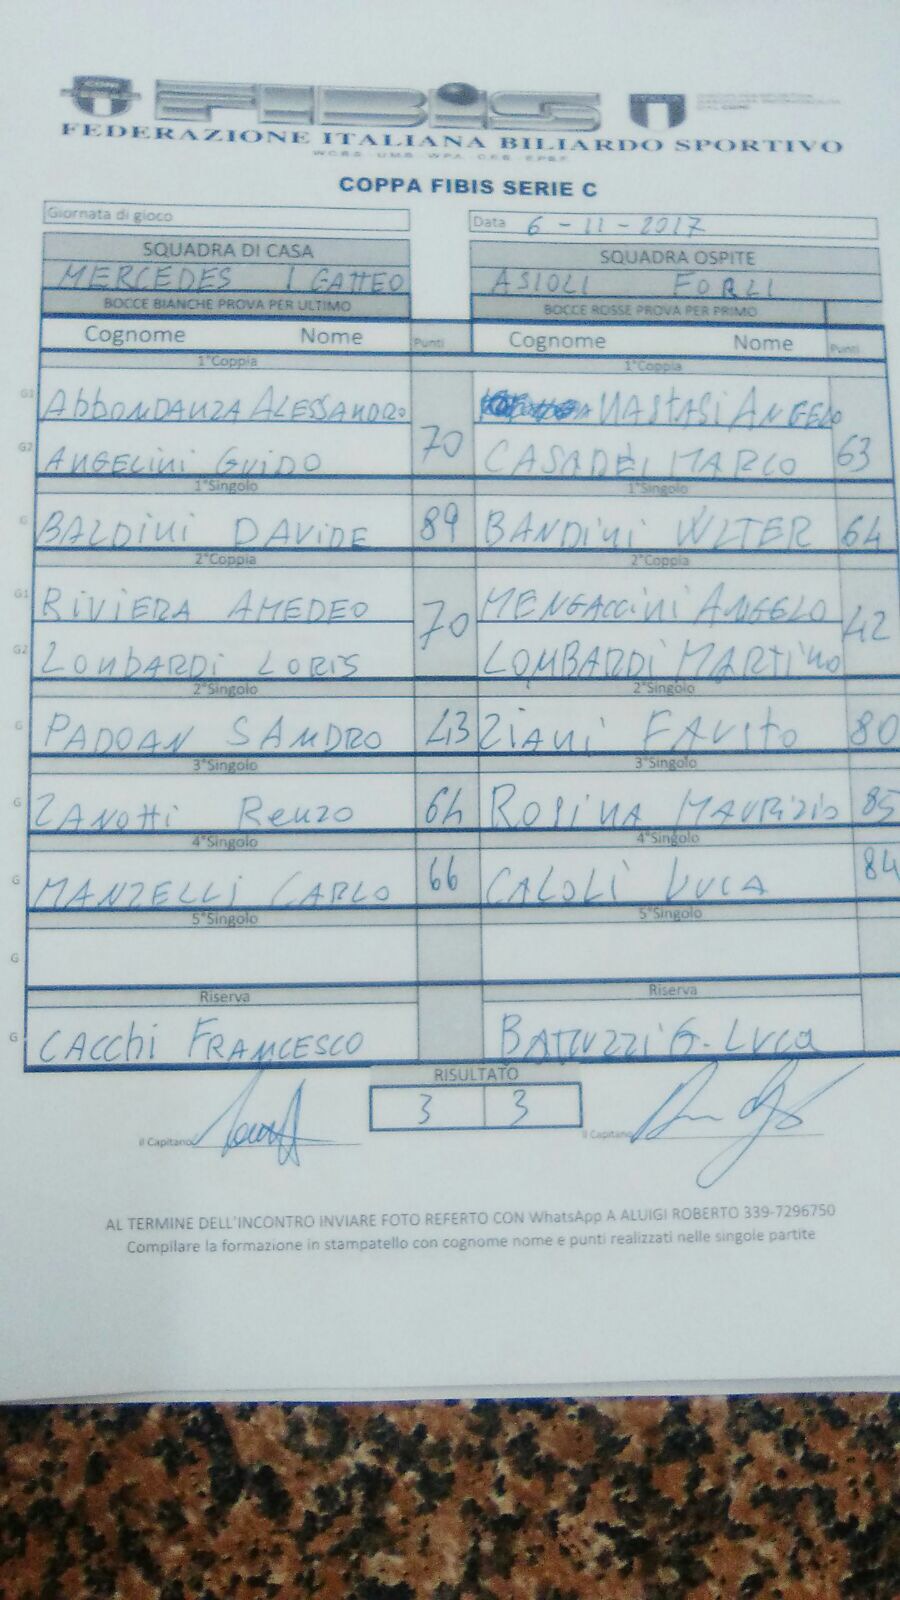 FIBiS
FEDERAZIONE ITALIANA BILIARDO SPORTIVO
COPPA FIBIS SERIE C
Giornata di gioco
Data 6 - 11 - 2017
SQUADRA DI CASA
SQUADRA OSPITE
MERCEDES I GATTEO
ASIOLI FORLI
BOCCE BIANCHE PROVA PER ULTIMO
BOCCE ROSSE PROVA PER PRIMO
Cognome Nome Punti
Cognome Nome Punti
1°Coppia
1°Coppia
G1 ABBONDANZA ALESSANDRO
NASTASI ANGELO
70
63
G2 ANGELINI GUIDO
CASADEI MARCO
1°Singolo
1°Singolo
G BALDINI DAVIDE 89
BANDINI WLTER 64
2°Coppia
2°Coppia
G1 RIVIERA AMEDEO
MENGACCINI ANGELO
70
42
G2 LOMBARDI LORIS
LOMBARDI MARTINO
2°Singolo
2°Singolo
G PADOAN SANDRO 43
ZIANI FAVITO 80
3°Singolo
3°Singolo
G ZANOTTI RENZO 64
ROSINA MAURIZIO 85
4°Singolo
4°Singolo
G MANZELLI CARLO 66
CALOLI LUCA 84
5°Singolo
5°Singolo
G
Riserva
Riserva
G CACCHI FRANCESCO
G. LUCA
RISULTATO
3 3
Il Capitano
Il Capitano
AL TERMINE DELL'INCONTRO INVIARE FOTO REFERTO CON WhatsApp A ALUIGI ROBERTO 339-7296750
Compilare la formazione in stampatello con cognome nome e punti realizzati nelle singole partite